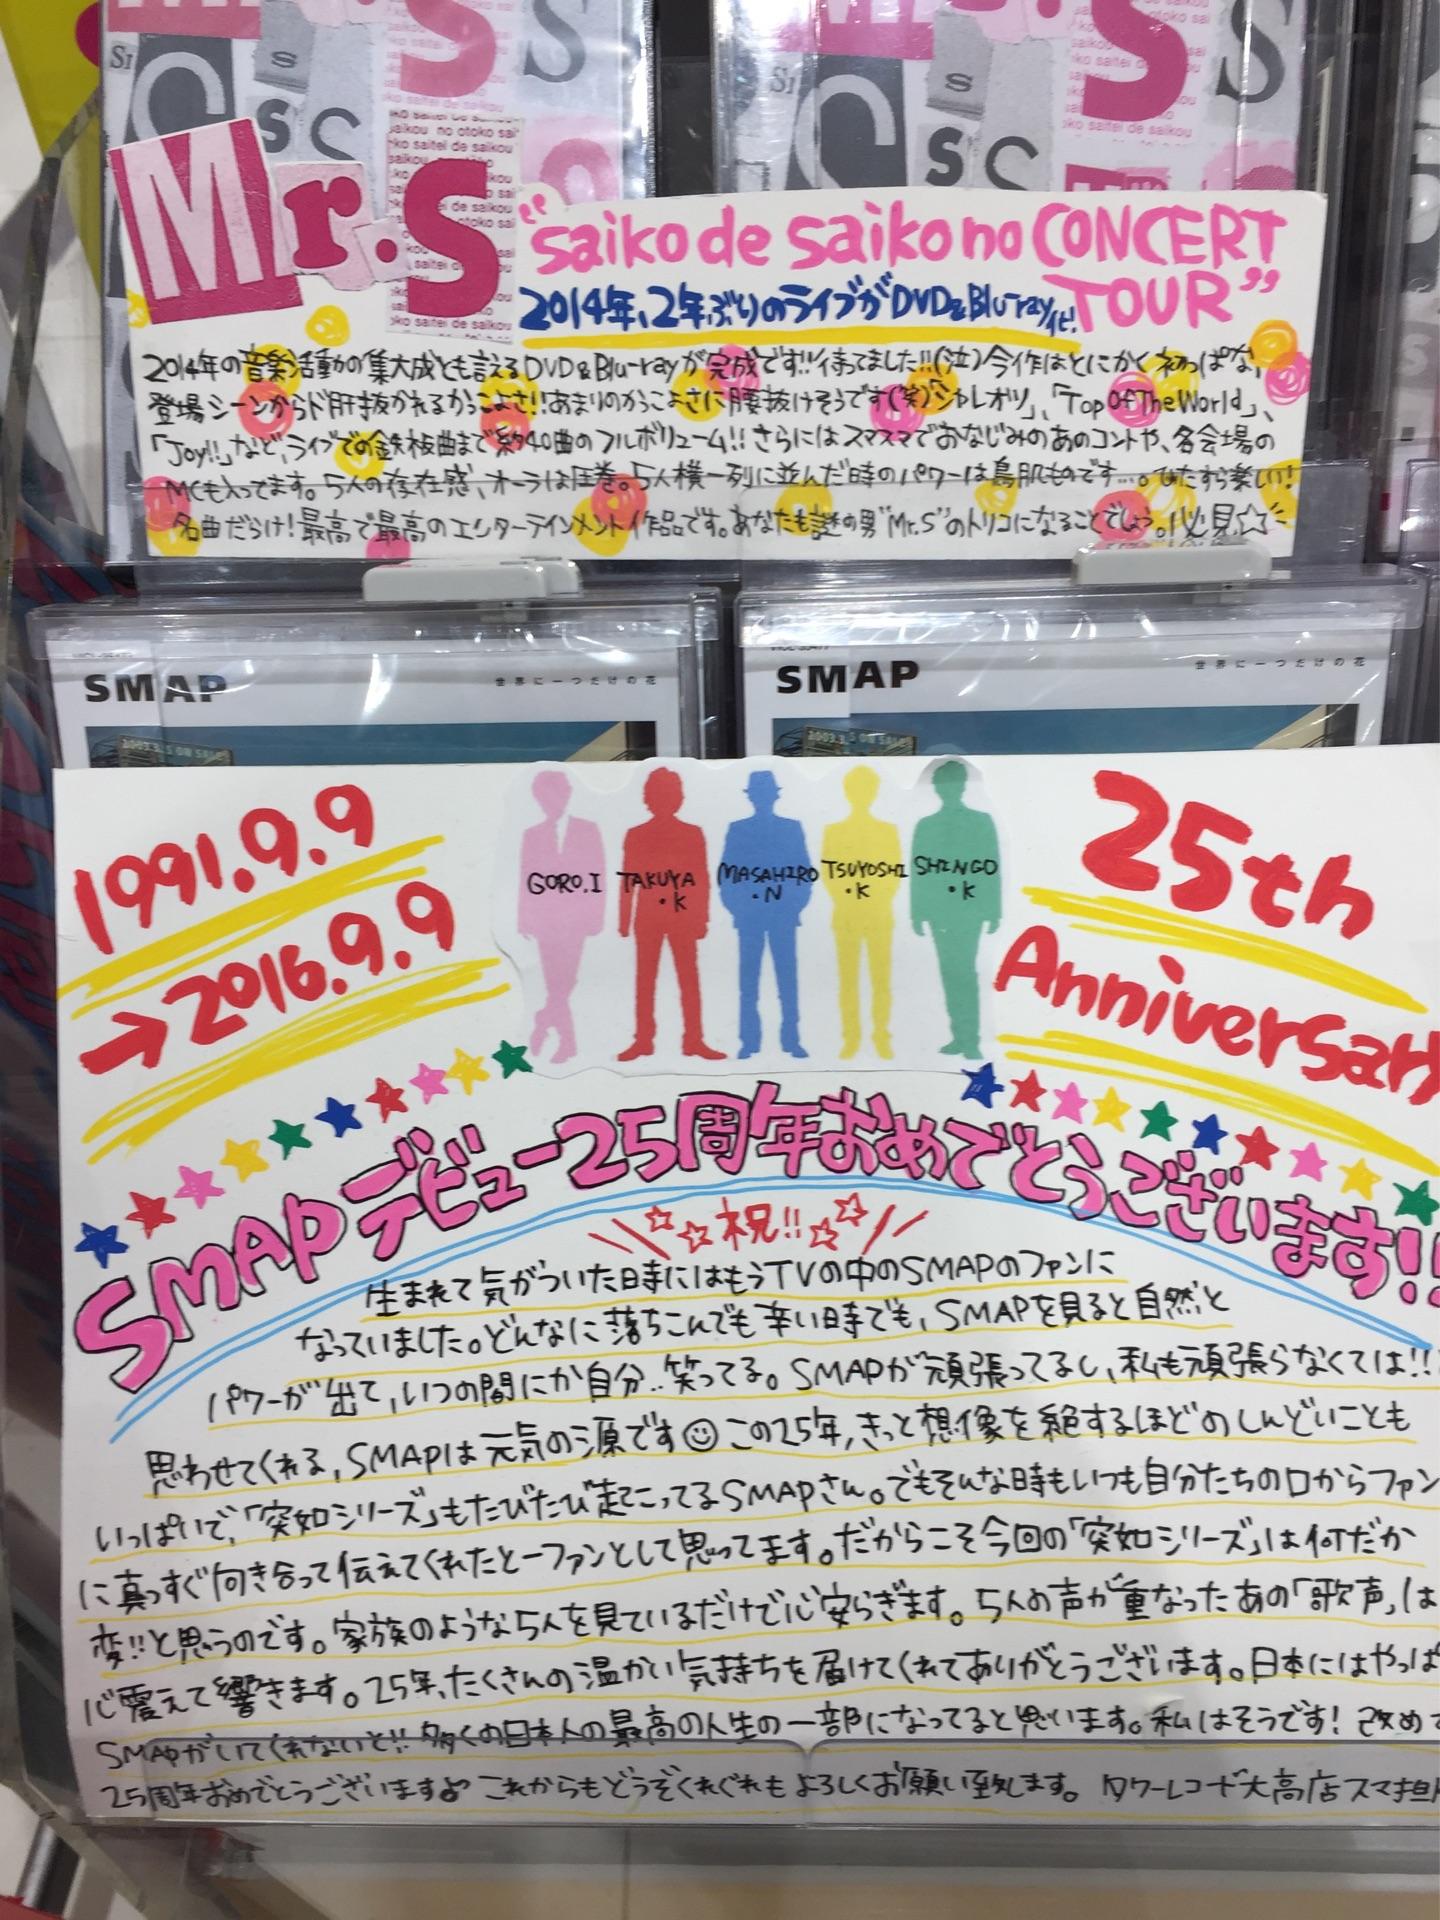 Mr.S
"saiko de saiko no CONCERT
TOUR"
2014年、2年ぶりのライブがDVD&Blu-ray化!
2014年の音楽活動の集大成とも言えるDVD&Blu-rayが完成です!!待ってました!!(泣)今作はとにかく初っぱな、
登場シーンからド肝抜かれるかっこよさ!!あまりのかっこよさに腰抜けそうです(笑)「シャレオツ」、「Top Of The World」、
「Joy!!」など、ライブでの鉄板曲まで約40曲のフルボリューム!!さらにはスマスマでおなじみのあのコントや、各会場の
MCも入ってます。5人の存在感、オーラは圧巻。5人横一列に並んだ時のパワーは鳥肌ものです…。ひたすら楽しい!
名曲だらけ!最高で最高のエンターテインメント作品です。あなたも謎の男"Mr.S"のトリコになることでしょう。必見☆
SMAP 世界に一つだけの花
SMAP 世界に一つだけの花
2003.3.5 ON SALE
2003.3.5 ON SALE
1991.9.9
→2016.9.9
GORO.I
TAKUYA.K
MASAHIRO.N
TSUYOSHI.K
SHINGO.K
25th
Anniversary
SMAPデビュー25周年おめでとうございます!!
☆☆祝!!☆☆
生まれて気がついた時にはもうTVの中のSMAPのファンに
なっていました。どんなに落ちこんでも辛い時でも、SMAPを見ると自然と
パワーが出て、いつの間にか自分..笑ってる。SMAPが頑張ってるし、私も頑張らなくては!!
思わせてくれる、SMAPは元気の源です☺この25年、きっと想像を絶するほどのしんどいことも
いっぱいで、「突如シリーズ」もたびたび起こってるSMAPさん。でもそんな時もいつも自分たちの口からファン
に真っすぐ向き合って伝えてくれたと一ファンとして思ってます。だからこそ今回の「突如シリーズ」は何だか
変!!と思うのです。家族のような5人を見ているだけで心安らぎます。5人の声が重なったあの「歌声」は
心震えて響きます。25年、たくさんの温かい気持ちを届けてくれてありがとうございます。日本にはやっぱ
SMAPがいてくれないと!!多くの日本人の最高の人生の一部になってると思います。私はそうです!改めて
25周年おめでとうございます♪これからもどうぞくれぐれもよろしくお願い致します。タワーレコード大高店スマ担